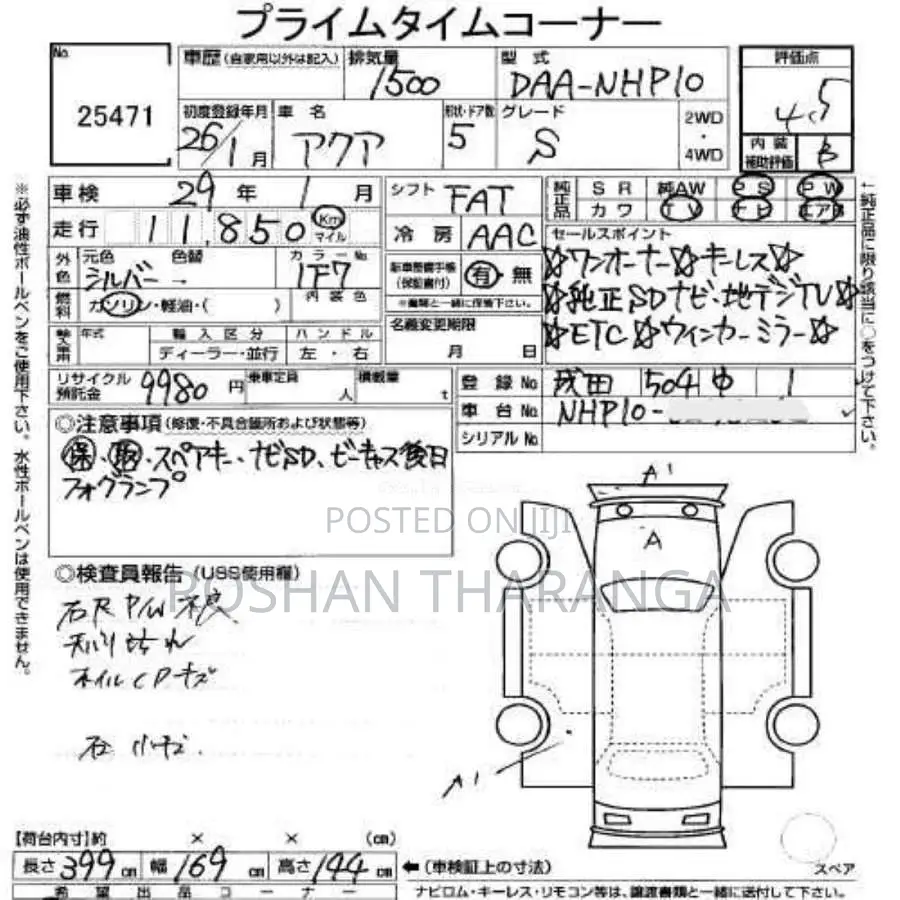 プライムタイムコーナー
No. 25471
車歴(自家用以外は記入) 排気量 1500 型式 DAA-NHP10 評価点 4.5
初度登録年月 26/1月 車名 アクア 形状・ドア数 5 グレード S 2WD・4WD 内装補助評価 B
車検 29年 1月 シフト FAT 純正品 SR 純AW PS PW
カワ TV ナビ エアB
走行 11,850 Km マイル 冷房 AAC セールスポイント
外色 元色 シルバー 色替 → カラーNo. 1F7
燃料 ガソリン・軽油・( ) 内装色
(保証書付) 有・無
※書類と一緒に保管下さい。
☆ワンオーナー☆キーレス☆
☆純正SDナビ・地デジTV☆
☆ETC☆ウィンカーミラー☆
輸入車用 年式 輸入区分 ハンドル 名義変更期限
ディーラー・並行 左・右 月 日
リサイクル預託金 9980円 乗車定員 人 積載量 t
登録No. 成田 504 ゆ 1
車台No. NHP10-
シリアルNo.
◎注意事項(修復・不具合箇所および状態等)
保・取・スペアキー、ナビSD、ビーキャス後日
フォグランプ
POSTED ON JIJI
ROSHAN THARANGA
◎検査員報告(USS使用欄)
石R P/W不良
ホイルCPキズ
石 小キズ.
A1
A
A1
スペア
【荷台内寸】約 × × (cm)
長さ 399cm 幅 169cm 高さ 144cm ←(車検証上の寸法)
希望出品コーナー
ナビロム・キーレス・リモコン等は、譲渡書類と一緒に送付して下さい。
※必ず油性ボールペンをご使用下さい。水性ボールペンは使用できません。
↑純正品に限り該当に○をつけて下さい。